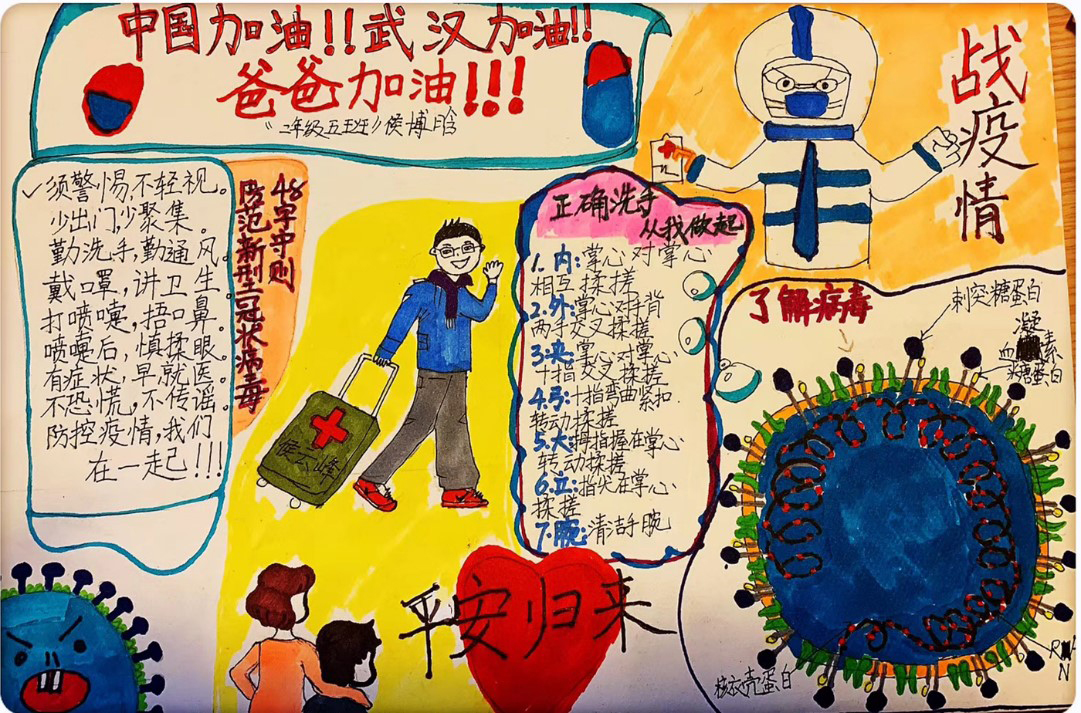 中国加油!!武汉加油!!
爸爸加油!!!
《二年级五班》侯博晗
战疫情
✓须警惕,不轻视。
少出门,少聚集。
勤洗手,勤通风。
戴口罩,讲卫生。
打喷嚏,捂口鼻。
喷嚏后,慎揉眼。
有症状,早就医。
不恐慌,不传谣。
防控疫情,我们
在一起!!!
48字守则
防范新型冠状病毒
侯云峰
正确洗手
从我做起
1.内:掌心对掌心
相互揉搓
2.外:掌心对手背
两手交叉揉搓
3.夹:掌心对掌心
十指交叉揉搓
4.弓:十指弯曲紧扣
转动揉搓
5.大:拇指握在掌心
转动揉搓
6.立:指尖在掌心
揉搓
7.腕:清洁手腕
了解病毒
刺突糖蛋白
凝
血素
糖蛋白
核衣壳蛋白
平安归来